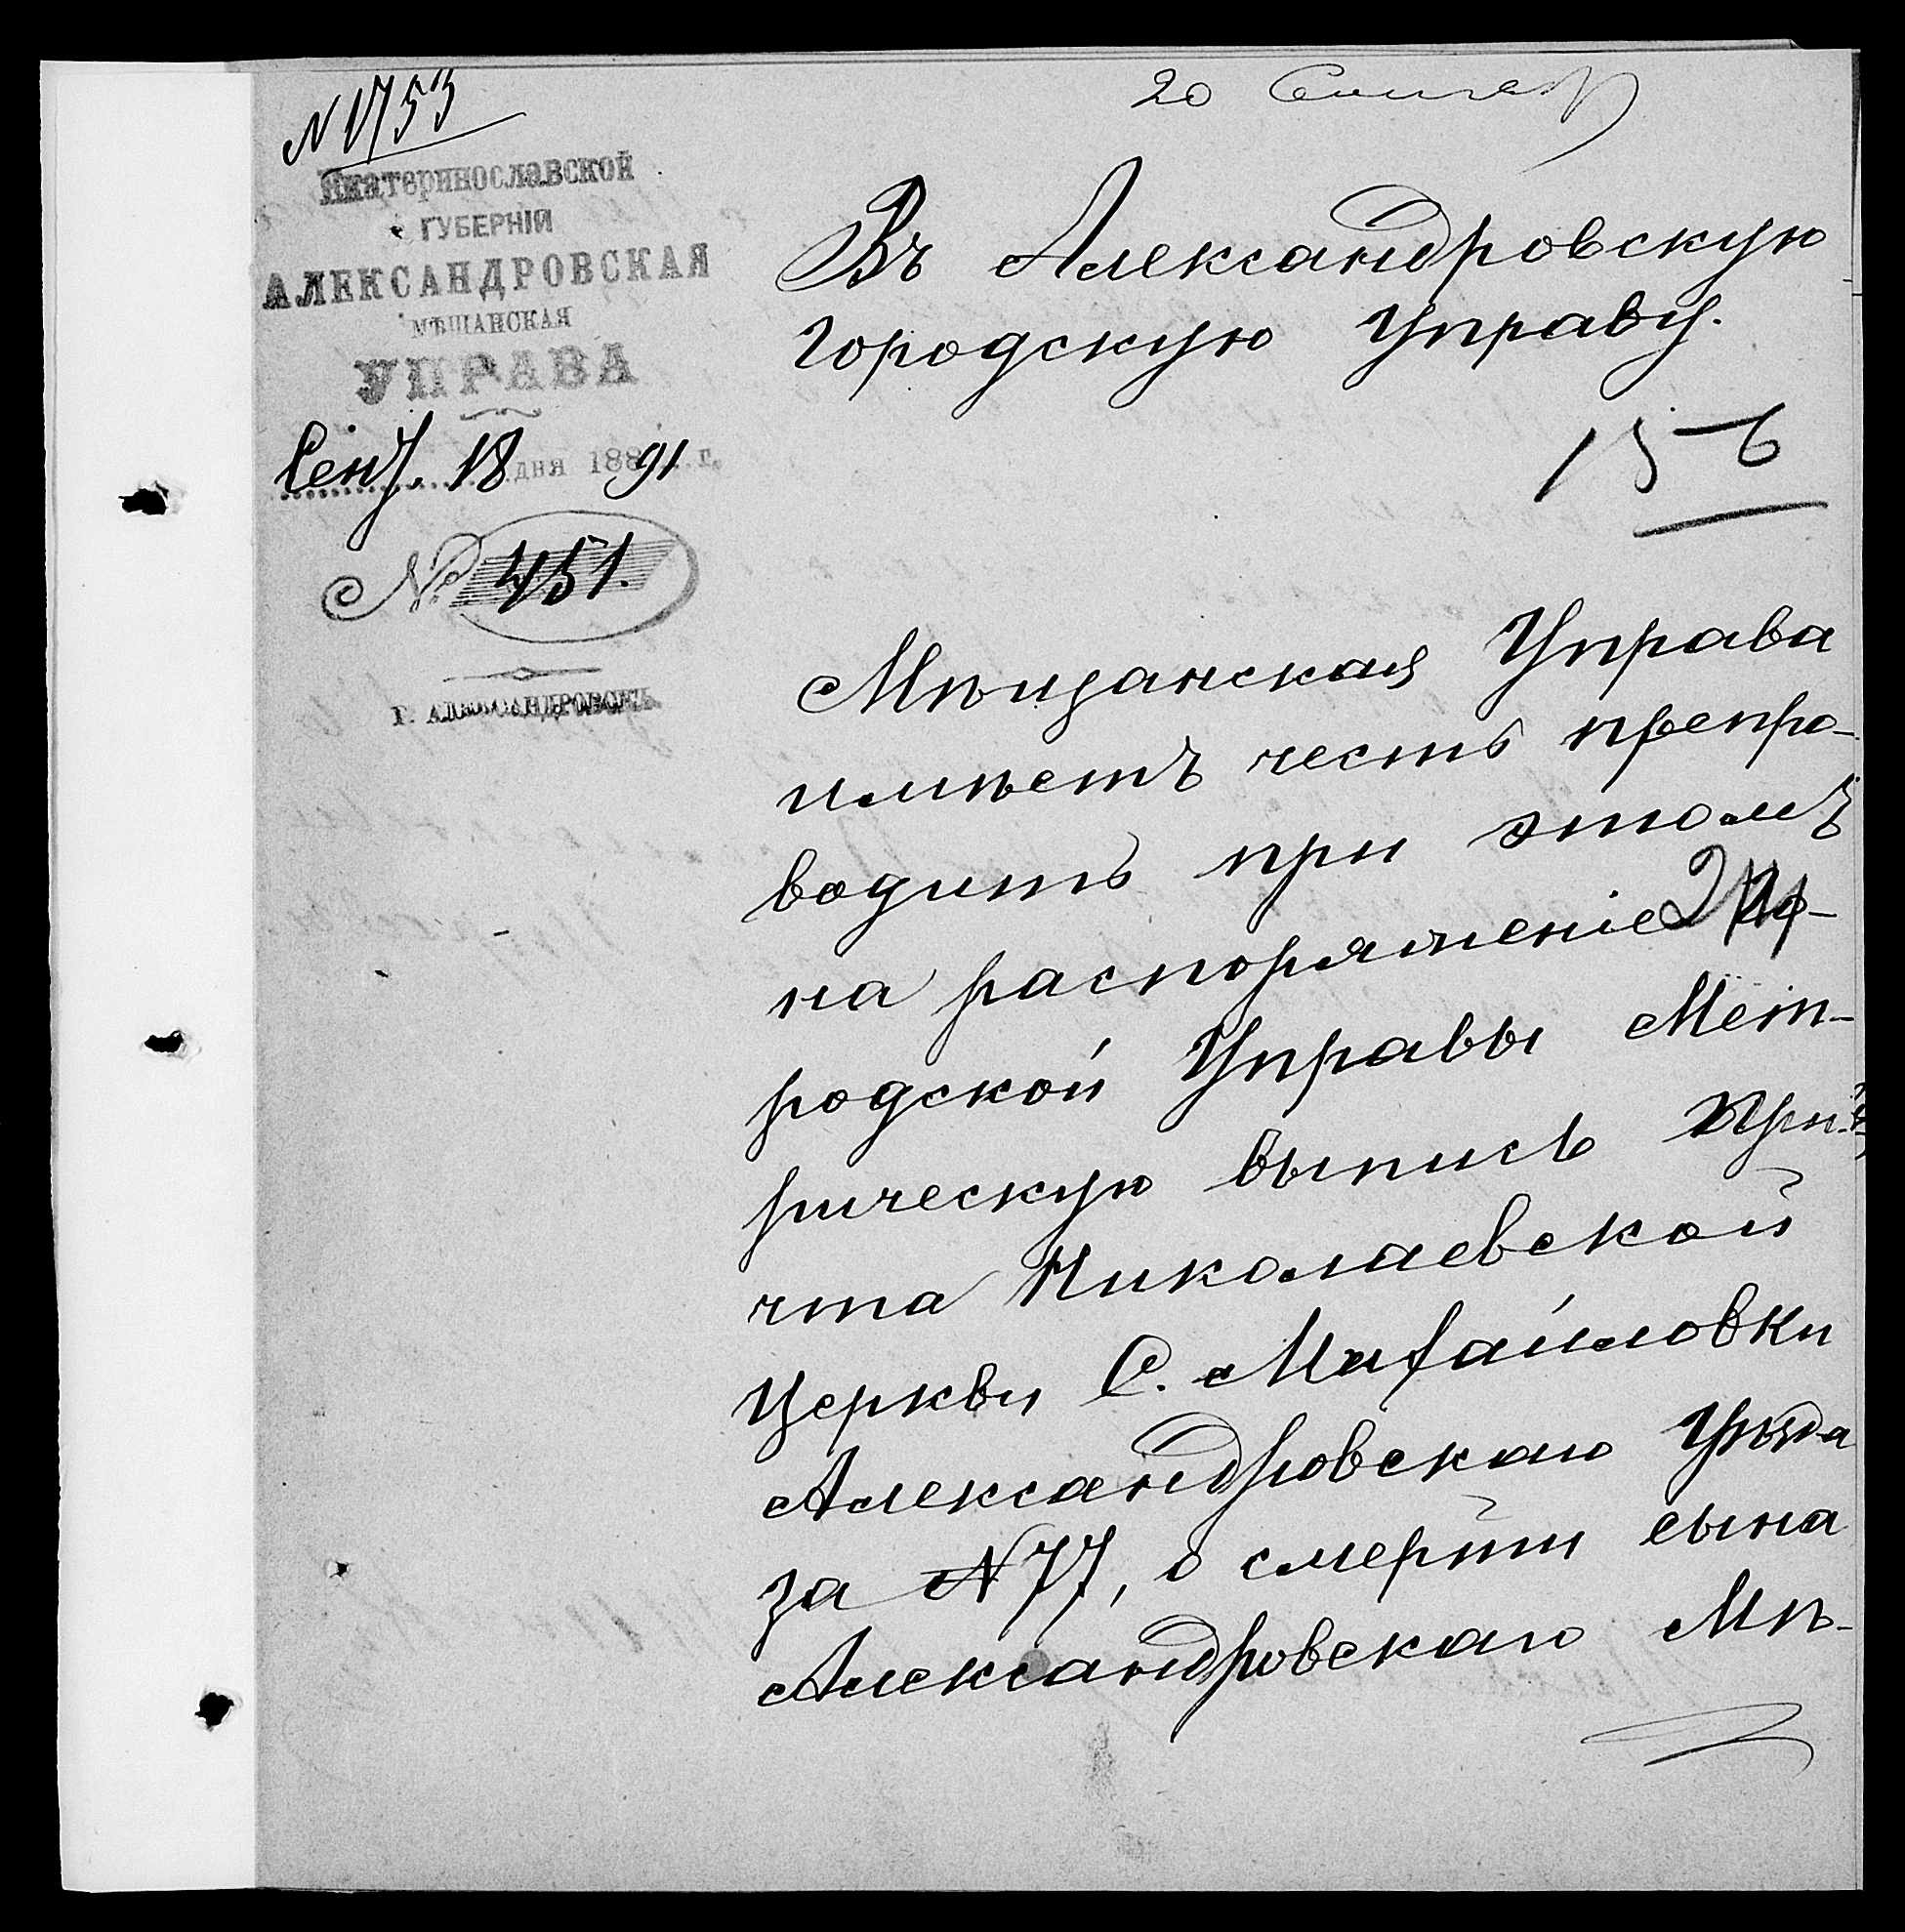 N 1753
20 Сентяб
Екатеринославской
ГУБЕРНІИ
АЛЕКСАНДРОВСКАЯ
МѢЩАНСКАЯ
УПРАВА
Сент. 18 дня 1891 г.
№ 451.
Г. АЛЕКСАНДРОВСКЪ
Въ Александровскую
Городскую Управу.
15-6
Мѣщанская Управа
имѣетъ честь препро-
водить при этомъ
на распоряженіе Го-
родской Управы Мет-
рическую выпись При-
чта Николаевской
Церкви С. Михайловки
Александровскаго Уѣзда
за N 77, о смерти сына
Александровскаго Мѣ-